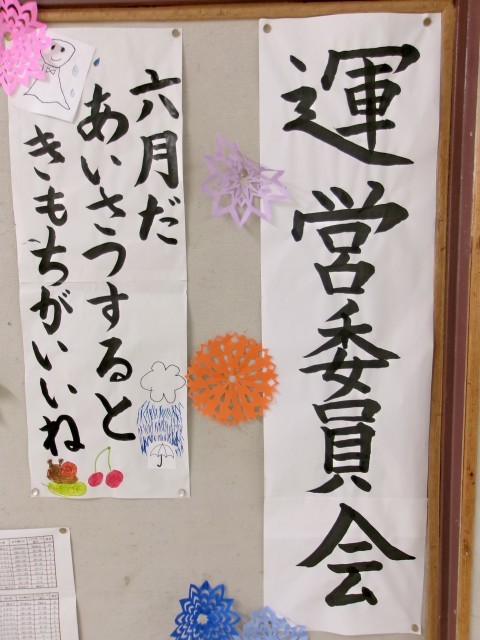 運営委員会
六月だ
あいさつすると
きもちがいいね